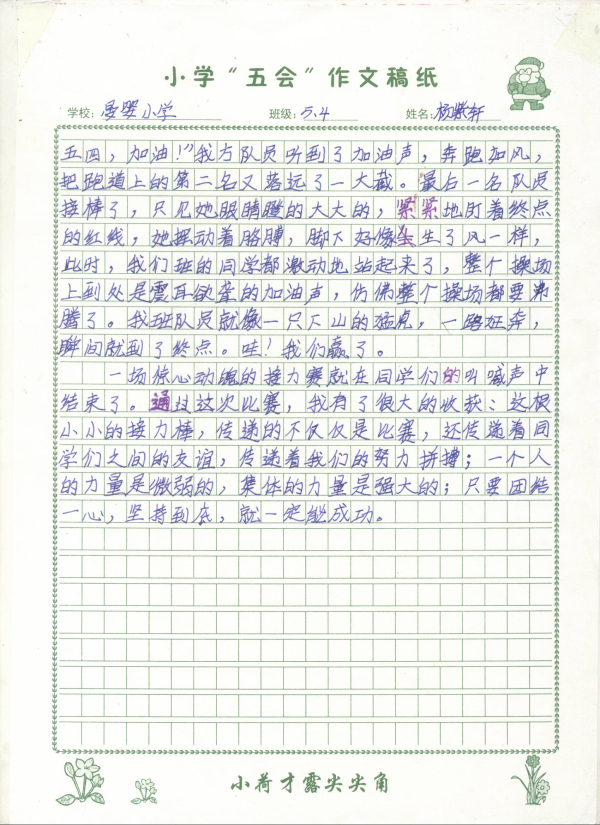 小学“五会”作文稿纸
学校：曼婴小学 班级：5.4 姓名：杨紫轩
五四，加油！”我方队员听到了加油声，奔跑如风，
把跑道上的第二名又落远了一大截。最后一名队员
接棒了，只见她眼睛瞪的大大的，紧紧地盯着终点
的红线，她摆动着胳膊，脚下好像生了风一样，
此时，我们班的同学都激动地站起来了，整个操场
上到处是震耳欲聋的加油声，仿佛整个操场都要沸
腾了。我班队员就像一只下山的猛虎，一路狂奔，
瞬间就到了终点。哇！我们赢了。
一场惊心动魄的接力赛就在同学们的叫喊声中
结束了。通过这次比赛，我有了很大的收获：这根
小小的接力棒，传递的不仅仅是比赛，还传递着同
学们之间的友谊，传递着我们的努力拼搏；一个人
的力量是微弱的，集体的力量是强大的；只要团结
一心，坚持到底，就一定能成功。
小荷才露尖尖角